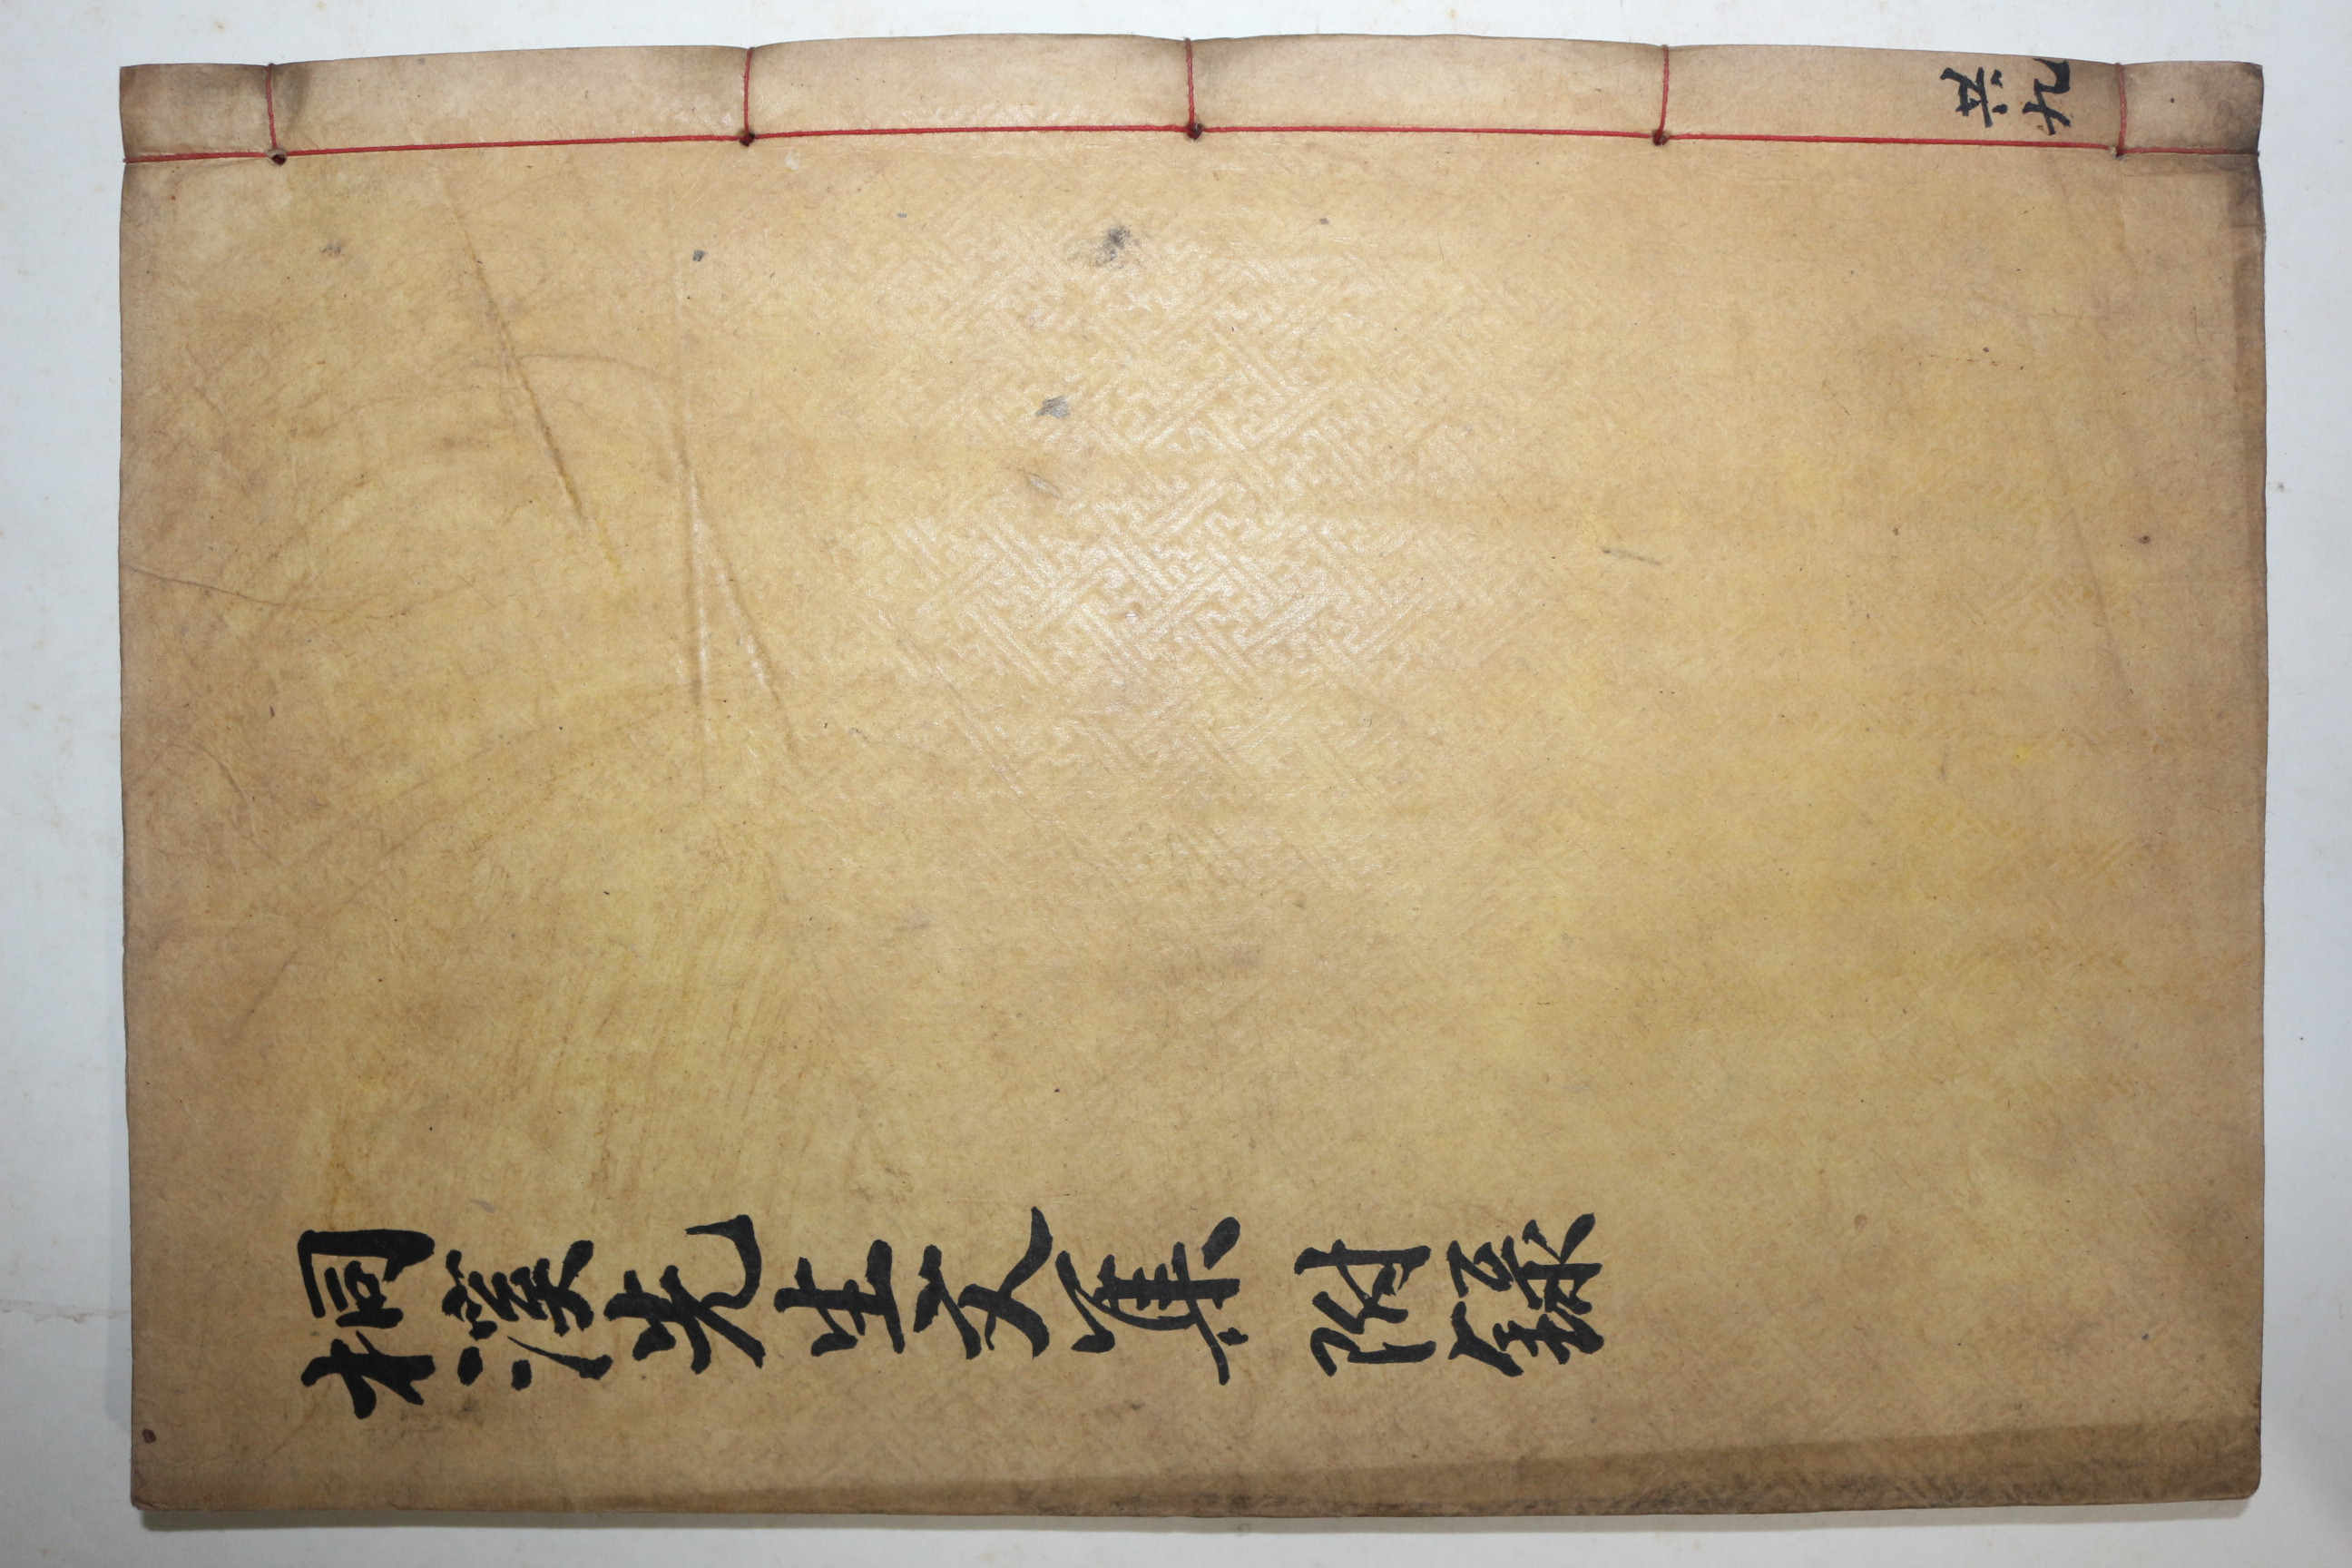 桐溪先生文集 附錄
共九